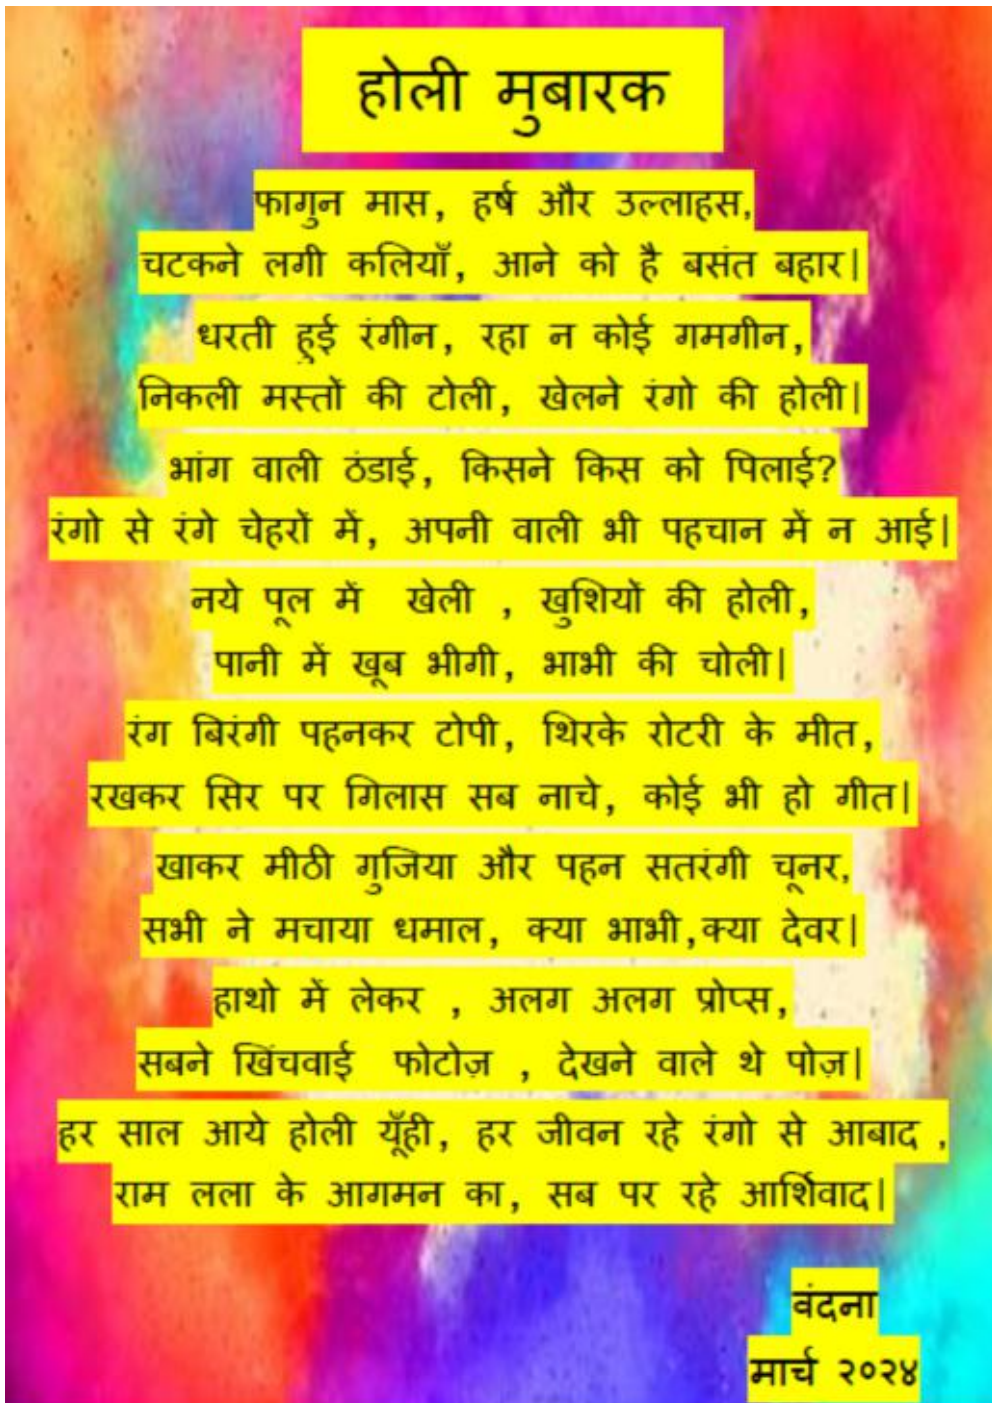 होली मुबारक
फागुन मास, हर्ष और उल्लाहस,
चटकने लगी कलियाँ, आने को है बसंत बहार|
धरती हुई रंगीन, रहा न कोई गमगीन,
निकली मस्तों की टोली, खेलने रंगो की होली|
भांग वाली ठंडाई, किसने किस को पिलाई?
रंगो से रंगे चेहरों में, अपनी वाली भी पहचान में न आई|
नये पूल में खेली , खुशियों की होली,
पानी में खूब भीगी, भाभी की चोली|
रंग बिरंगी पहनकर टोपी, थिरके रोटरी के मीत,
रखकर सिर पर गिलास सब नाचे, कोई भी हो गीत|
खाकर मीठी गुजिया और पहन सतरंगी चूनर,
सभी ने मचाया धमाल, क्या भाभी,क्या देवर|
हाथो में लेकर , अलग अलग प्रोप्स,
सबने खिंचवाई फोटोज़ , देखने वाले थे पोज़|
हर साल आये होली यूँही, हर जीवन रहे रंगो से आबाद ,
राम लला के आगमन का, सब पर रहे आर्शिवाद|
वंदना
मार्च २०२४